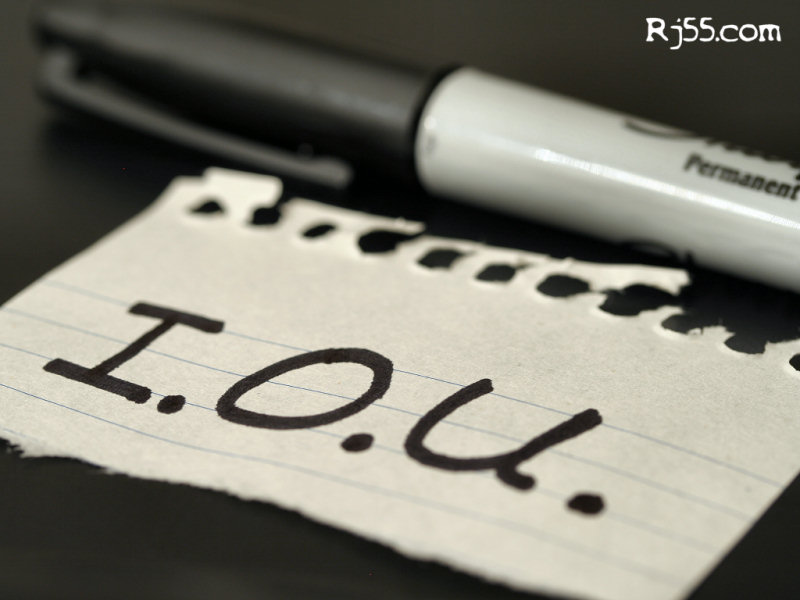 Rj55.com
Permanent
I.O.U.